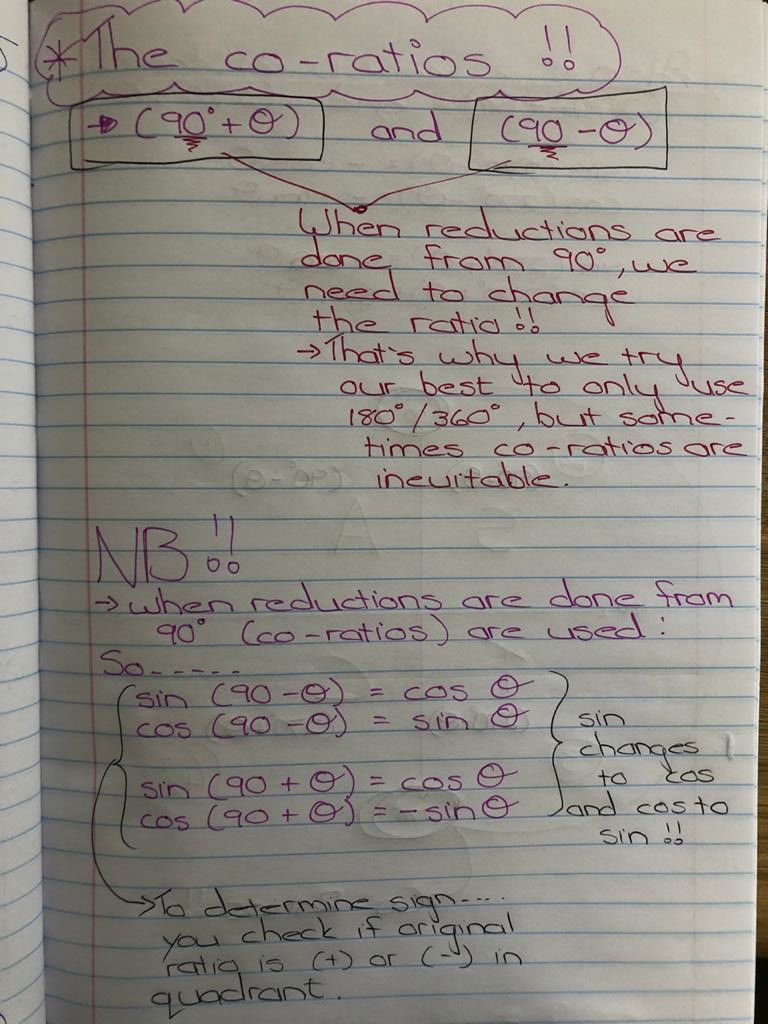 * The co-ratios !!
→ (90° + θ) and (90 - θ)
When reductions are
done from 90°, we
need to change
the ratio !!
→ That's why we try
our best to only use
180°/360°, but some-
times co-ratios are
inevitable.
NB !!
→ when reductions are done from
90° (co-ratios) are used :
So-----
sin (90 - θ) = cos θ
cos (90 - θ) = sin θ
sin (90 + θ) = cos θ
cos (90 + θ) = - sin θ
sin
changes
to cos
and cos to
sin !!
→ To determine sign----
you check if original
ratio is (+) or (-) in
quadrant.